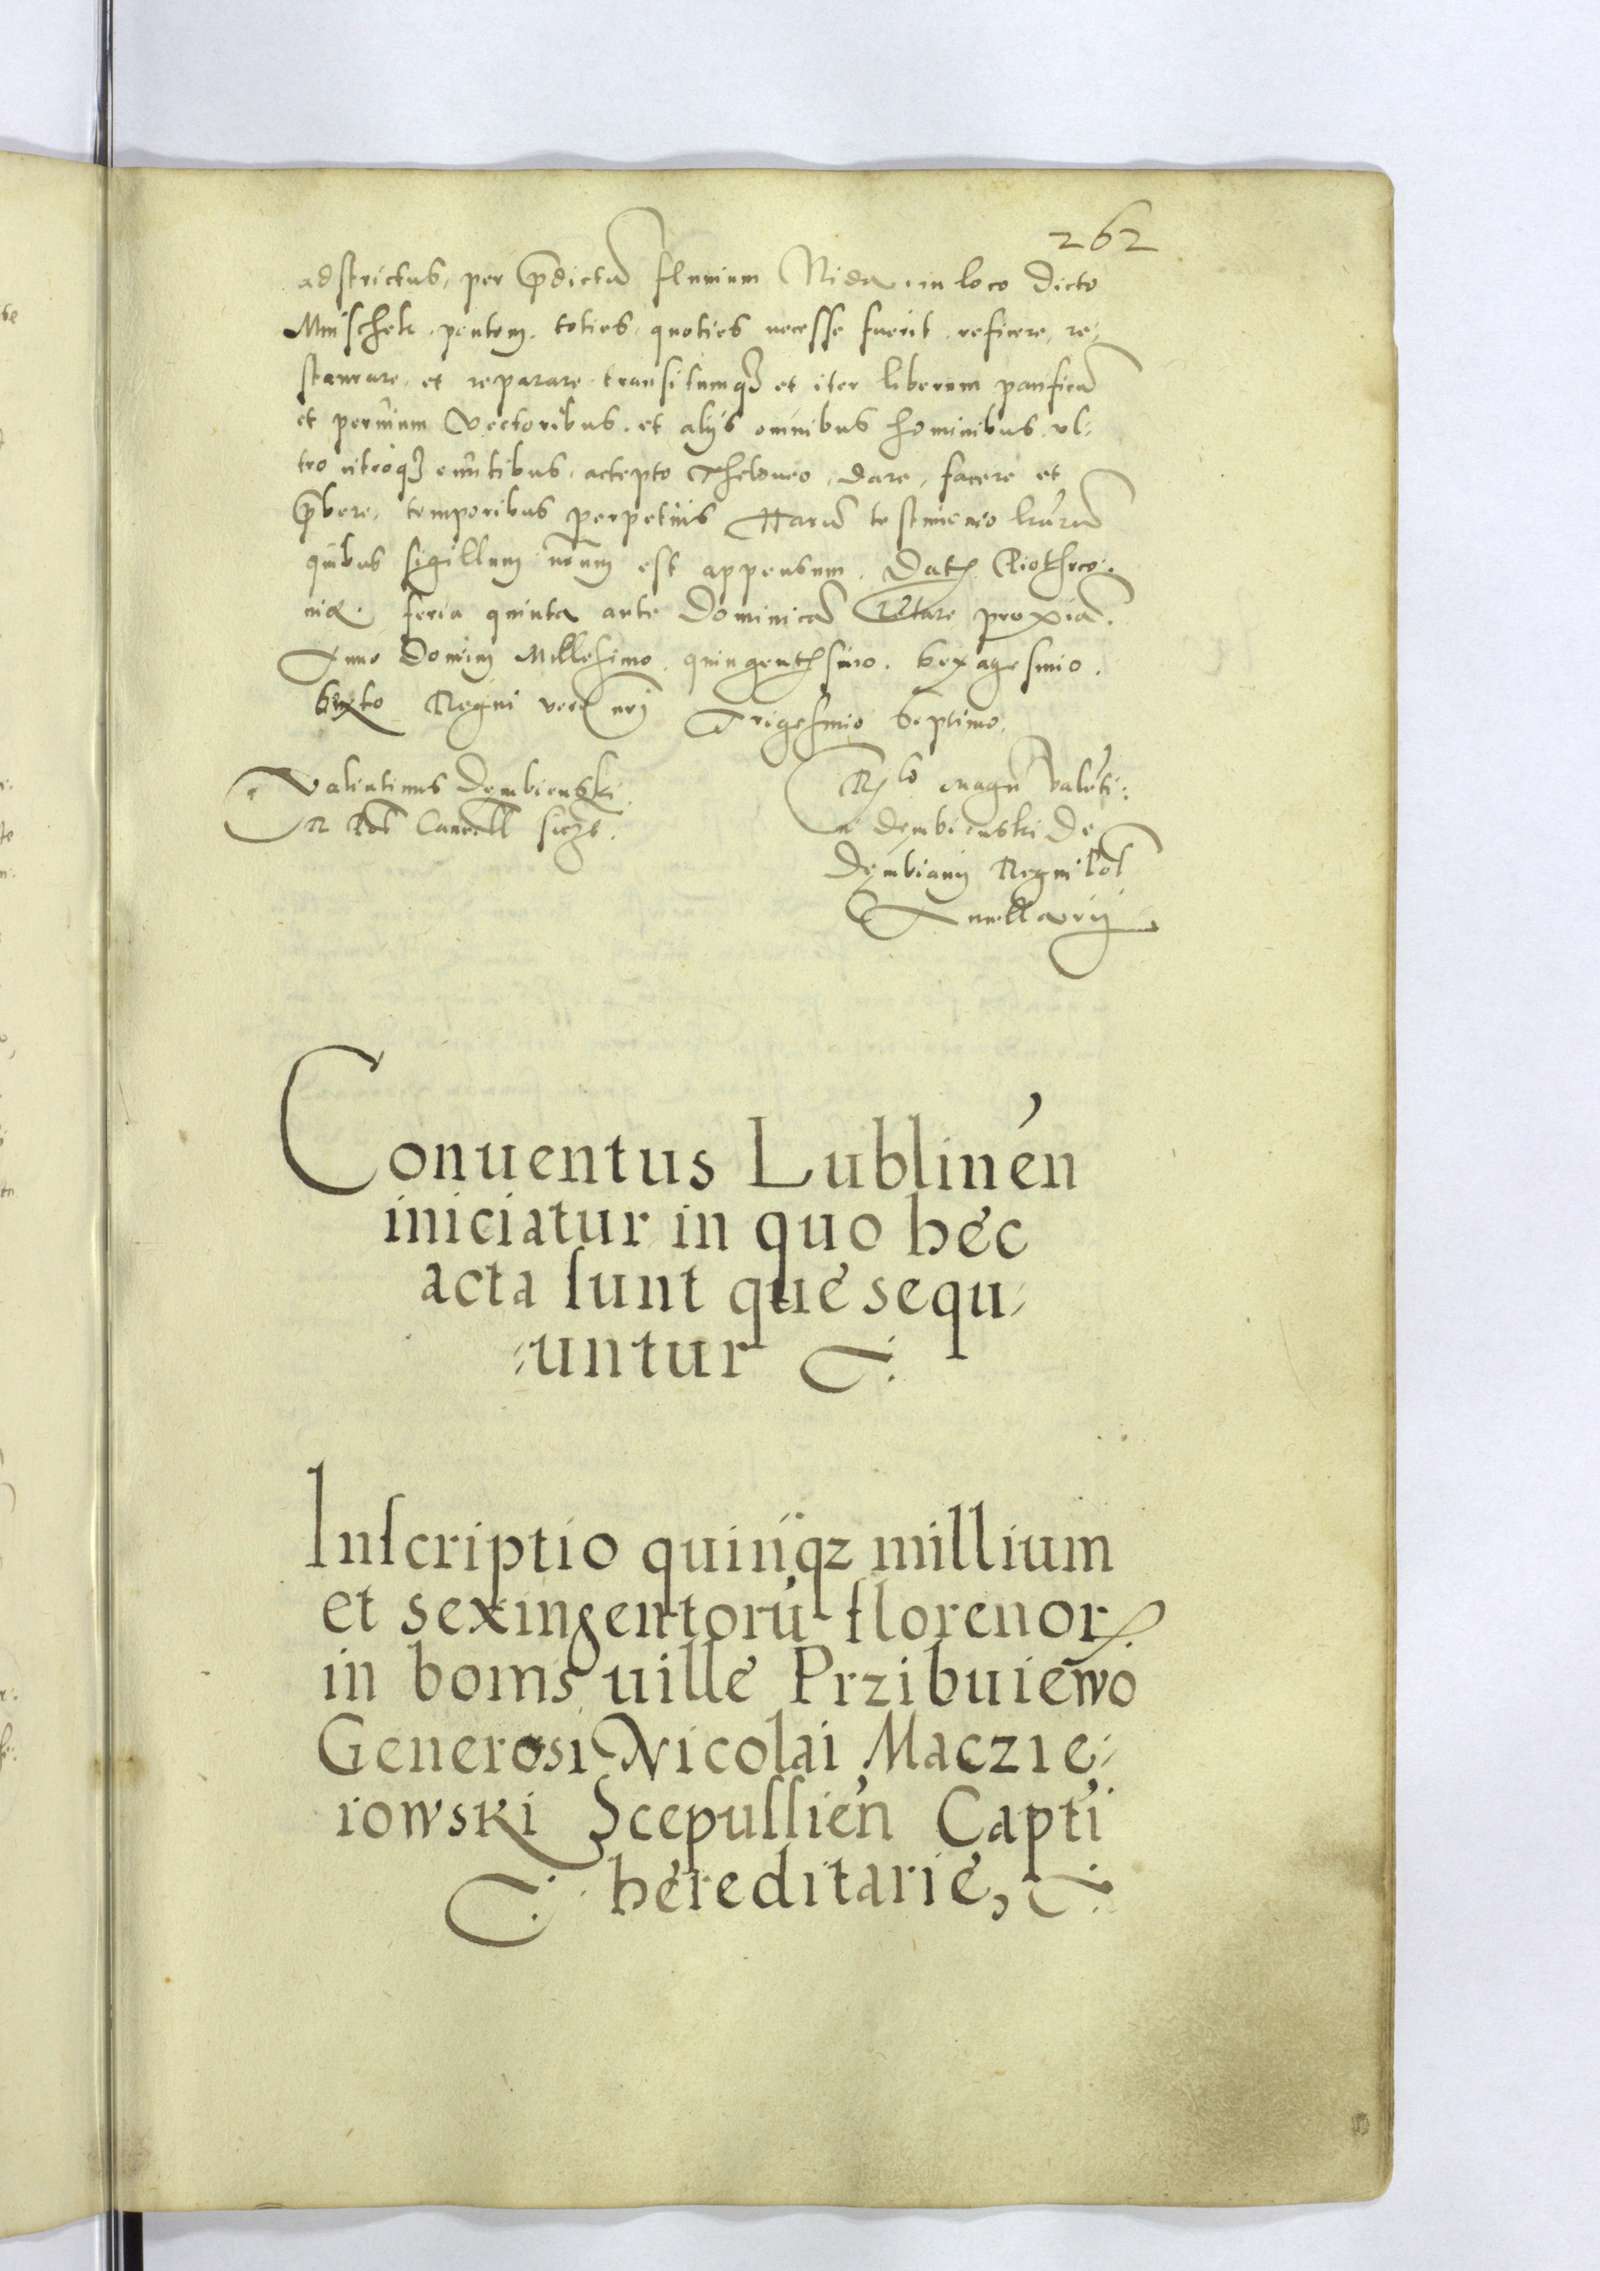 262
adstrictus, per p̄dictū flumium Nida in loco dicto
Mnischek pontem toties quoties necesse fuerit reficere, re-
staurare et reparare transitumq₃ et iter liberum pacificū
et permium vectoribus et alijs omnibus hominibus vl-
tro citroq₃ euntibus, accepto theloneo, dare, facere et
p̄bere, temporibus perpetuis Harū testimonio lr̄arū
quibus sigillum nr̄um est appensum. Datū Piothrco-
uiæ feria quinta ante Dominicā Lætare proximā.
Anno Domini Millesimo quingentesimo Sexagesimo
Sexto Regni vero nr̄i Trigesimo Septimo
Valentinus Dembienski
R Pol Cancell ssczs
Rlo magci Valēti-
ni Dembienski de
Dembiany Regni Pol
Cancellarij
Conuentus Lublinēn
iniciatur in quo hęc
acta sunt quę sequ-
-untur
Inscriptio quinq₃ millium
et sexingentorū florenorꝝ
in bonis uillę Przibuiewo
Generosi Nicolai Maczie-
iowski Scepussiēn Captī
hereditarię,